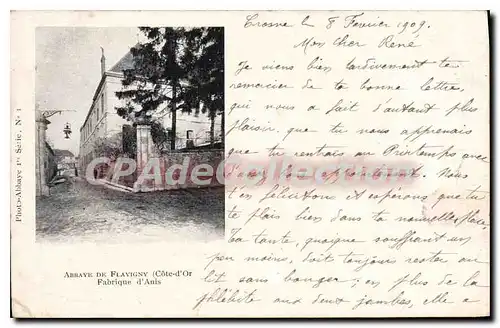 Crosne le 8 Fevrier 1909.
Mon cher René
Je viens bien tardivement te
remercier de ta bonne lettre,
qui nous a fait d'autant plus
plaisir, que tu nous apprenais
que tu rentrais au Printemps avec
t'en félicitons et espérons que tu
te plais bien dans ta nouvelle place.
Ta tante, quoique souffrant un
peu moins, doit toujours rester au
lit sans bouger; en plus de la
phlébite aux deux jambes, elle a
Photo-Abbaye 1re Série. No 1
CPArama.com
ABBAYE DE FLAVIGNY (Côte-d'Or
Fabrique d'Anis